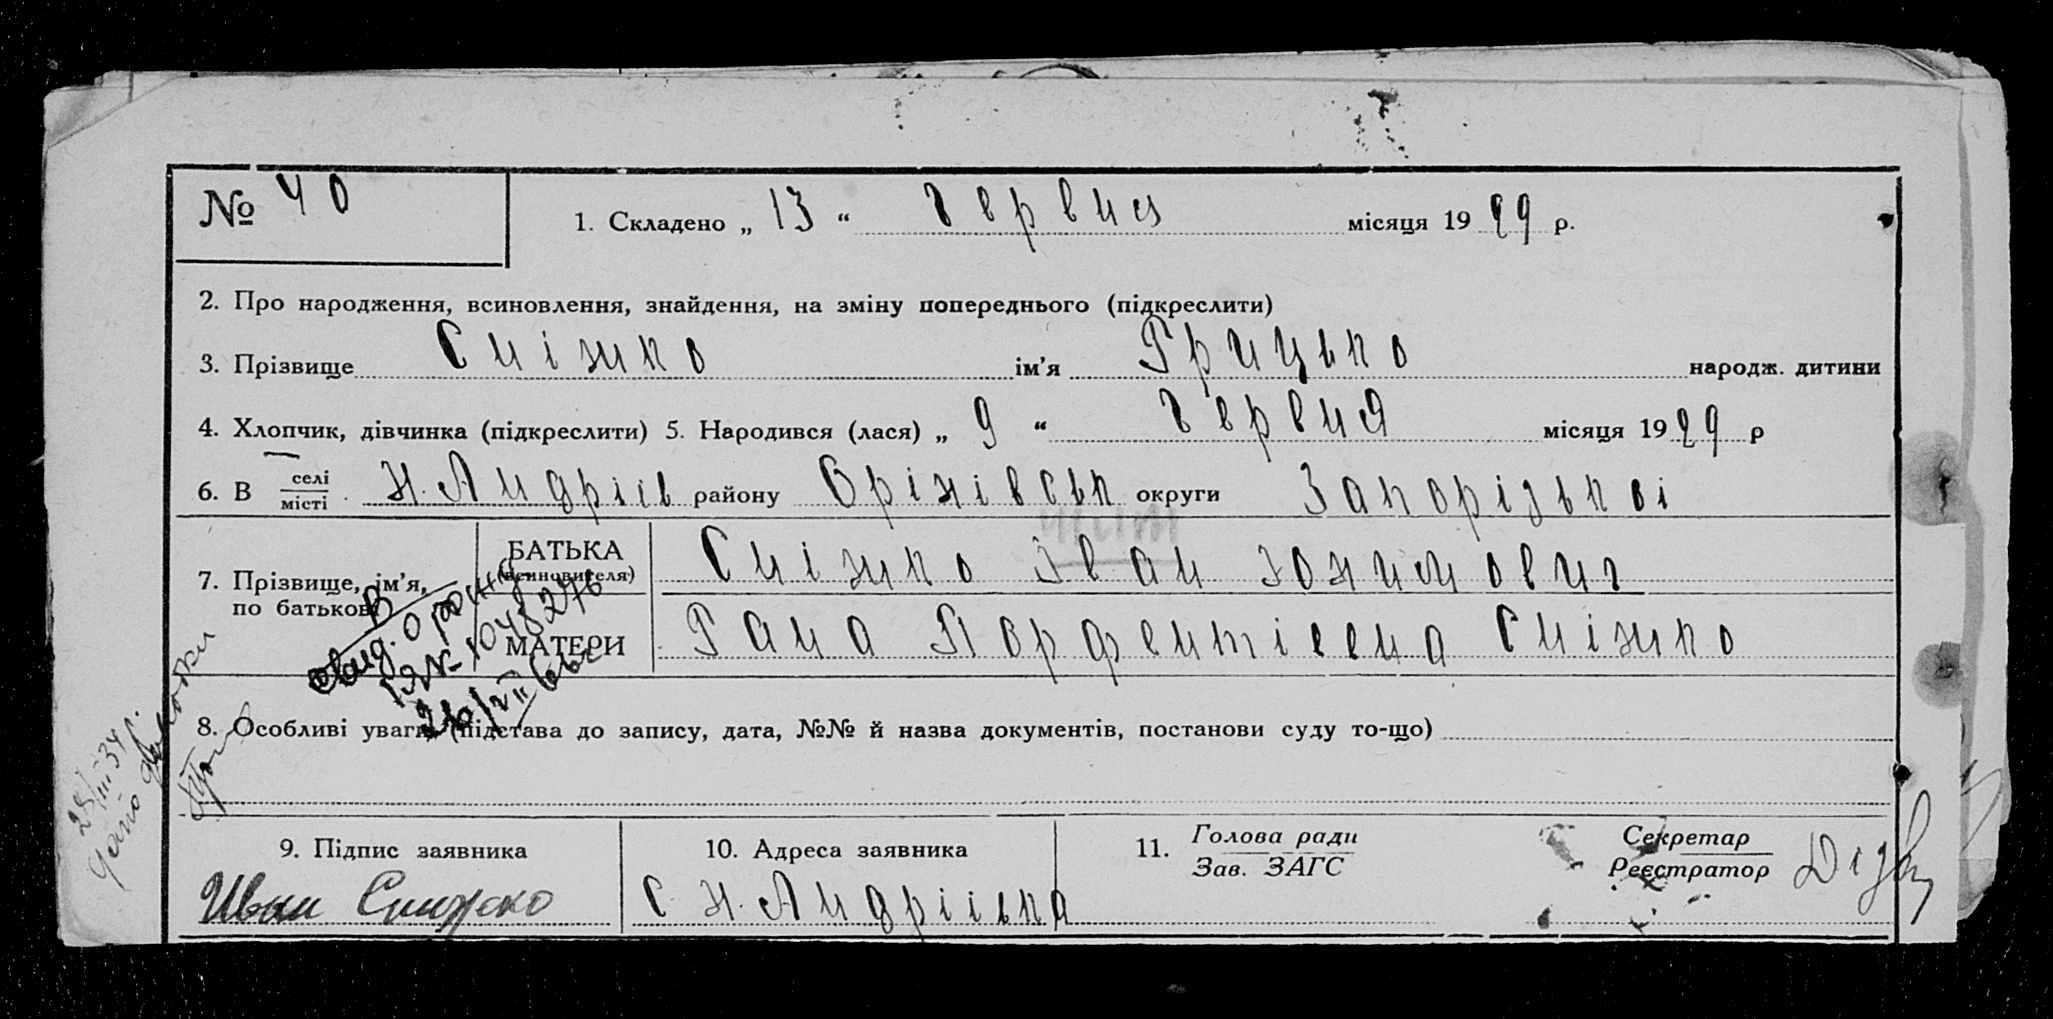 № 40
1. Складено „ 13 “ червня місяця 19 29 р.
2. Про народження, всиновлення, знайдення, на зміну попереднього (підкреслити)
3. Прізвище Сніжко ім’я Грицько народж. дитини
4. Хлопчик, дівчинка (підкреслити) 5. Народився (лася) „ 9 “ червня місяця 19 29 р
6. В селі місті Н. Андріїв району Оріхівськ округи Запорізької
7. Прізвище, ім’я, по батькові
БАТЬКА (всиновителя) Сніжко Іван
МАТЕРИ Ганна Парфентіевна Сніжко
8. Особливі уваги (підстава до запису, дата, №№ й назва документів, постанови суду то-що)
9. Підпис заявника
Иван Снижко
10. Адреса заявника
С. Н. Андріівка
11. Голова ради
Зав. ЗАГС
Секретар
Реєстратор